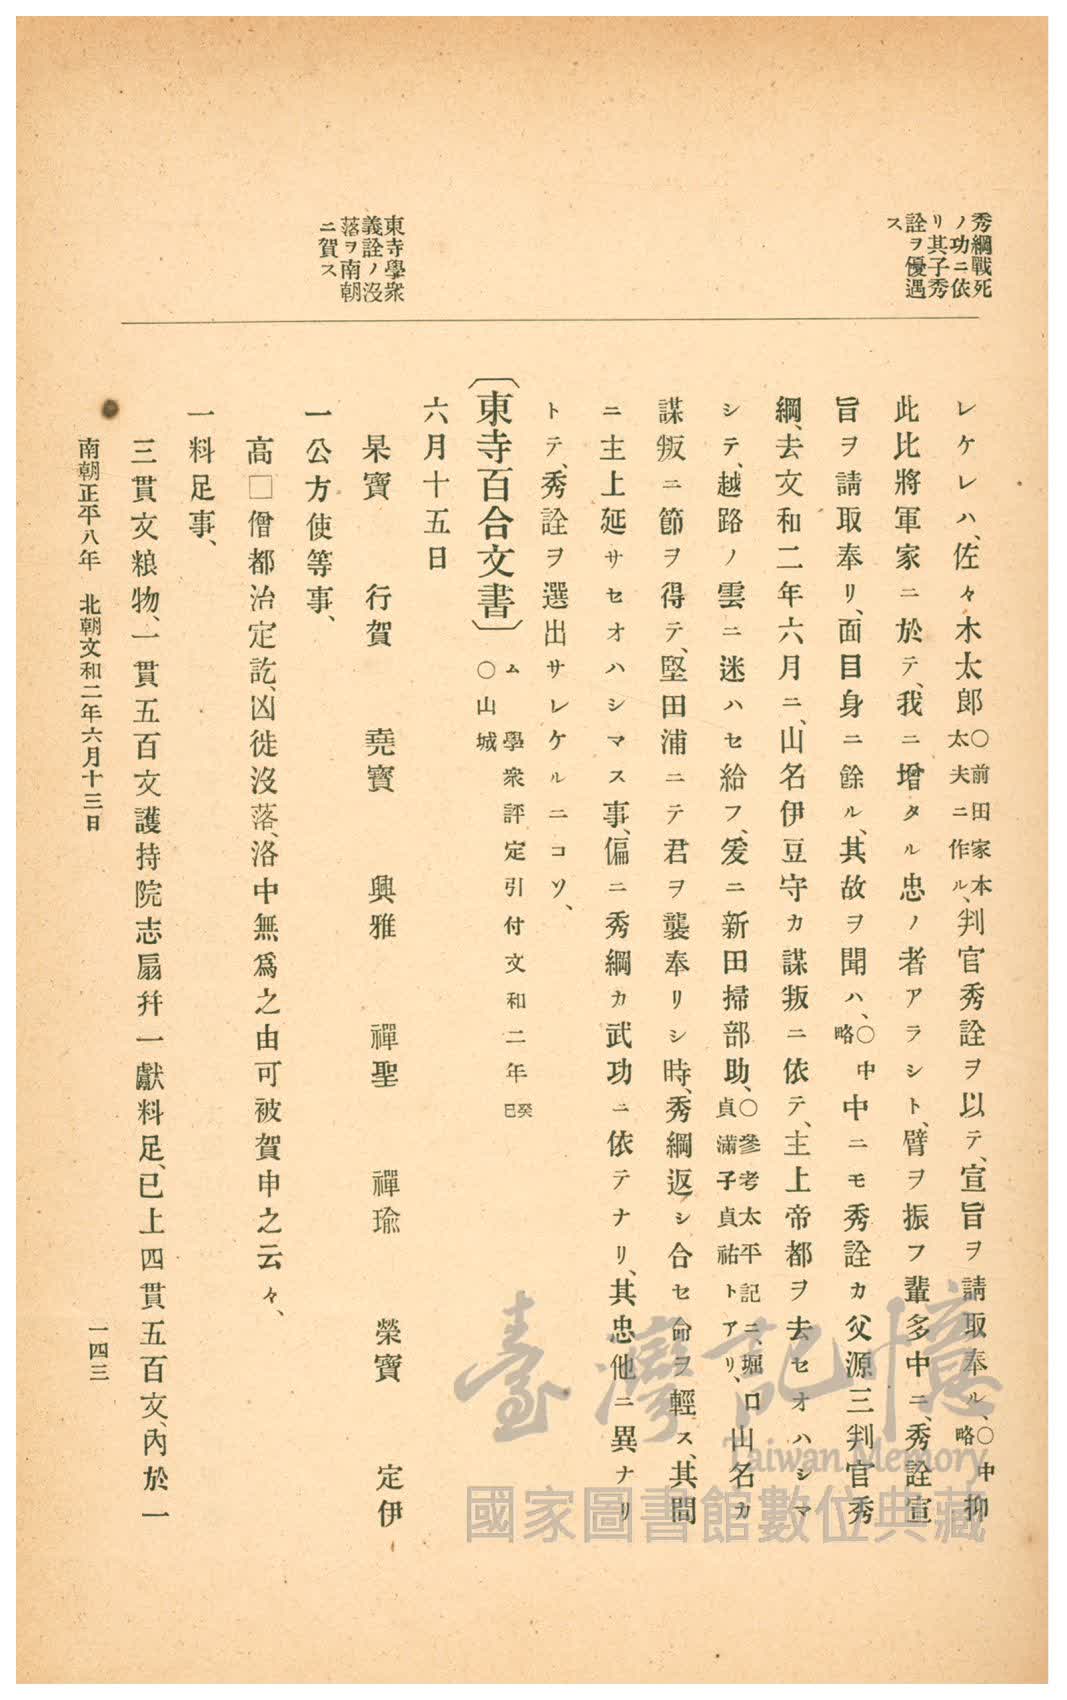 秀綱戰死
ノ功ニ依
リ其子秀
詮ヲ優遇
ス
東寺學衆
義詮ノ沒
落ヲ南朝
ニ賀ス
レケレハ、佐々木太郎〇前田家本太夫ニ作ル、判官秀詮ヲ以テ、宣旨ヲ請取奉ル、〇中略抑
此比將軍家ニ於テ、我ニ增タル忠ノ者アラシト、臂ヲ振フ輩多中ニ、秀詮宣
旨ヲ請取奉リ、面目身ニ餘ル、其故ヲ聞ハ、〇中略中ニモ秀詮カ父源三判官秀
綱、去文和二年六月ニ、山名伊豆守カ謀叛ニ依テ、主上帝都ヲ去セオハシマ
シテ、越路ノ雲ニ迷ハセ給フ、爰ニ新田掃部助、〇參考太平記ニ、堀口貞滿子貞祐トアリ、山名カ
謀叛ニ節ヲ得テ、堅田浦ニテ君ヲ襲奉リシ時、秀綱返シ合セ命ヲ輕ス、其間
ニ主上延サセオハシマス事、偏ニ秀綱カ武功ニ依テナリ、其忠他ニ異ナリ
トテ、秀詮ヲ選出サレケルニコソ、
〔東寺百合文書〕ム〇山城 學衆評定引付文和二年癸巳
六月十五日
杲寶 行賀 堯寶 興雅 禪聖 禪瑜 榮寶 定伊
一公方使等事、
高□僧都治定訖、凶徙沒落、洛中無爲之由可被賀申之云々、
一料足事、
三貫文粮物、一貫五百文護持院志扇幷一獻料足、已上四貫五百文、內於一
南朝正平八年 北朝文和二年六月十三日
一四三
臺灣記憶
Taiwan Memory
國家圖書館數位典藏